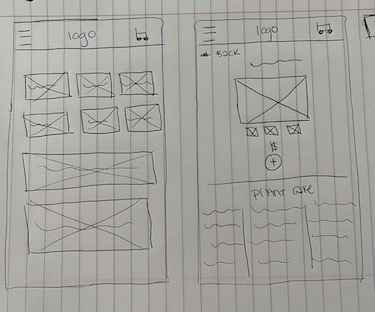 logo
logo
← BACK
$
+
plant care